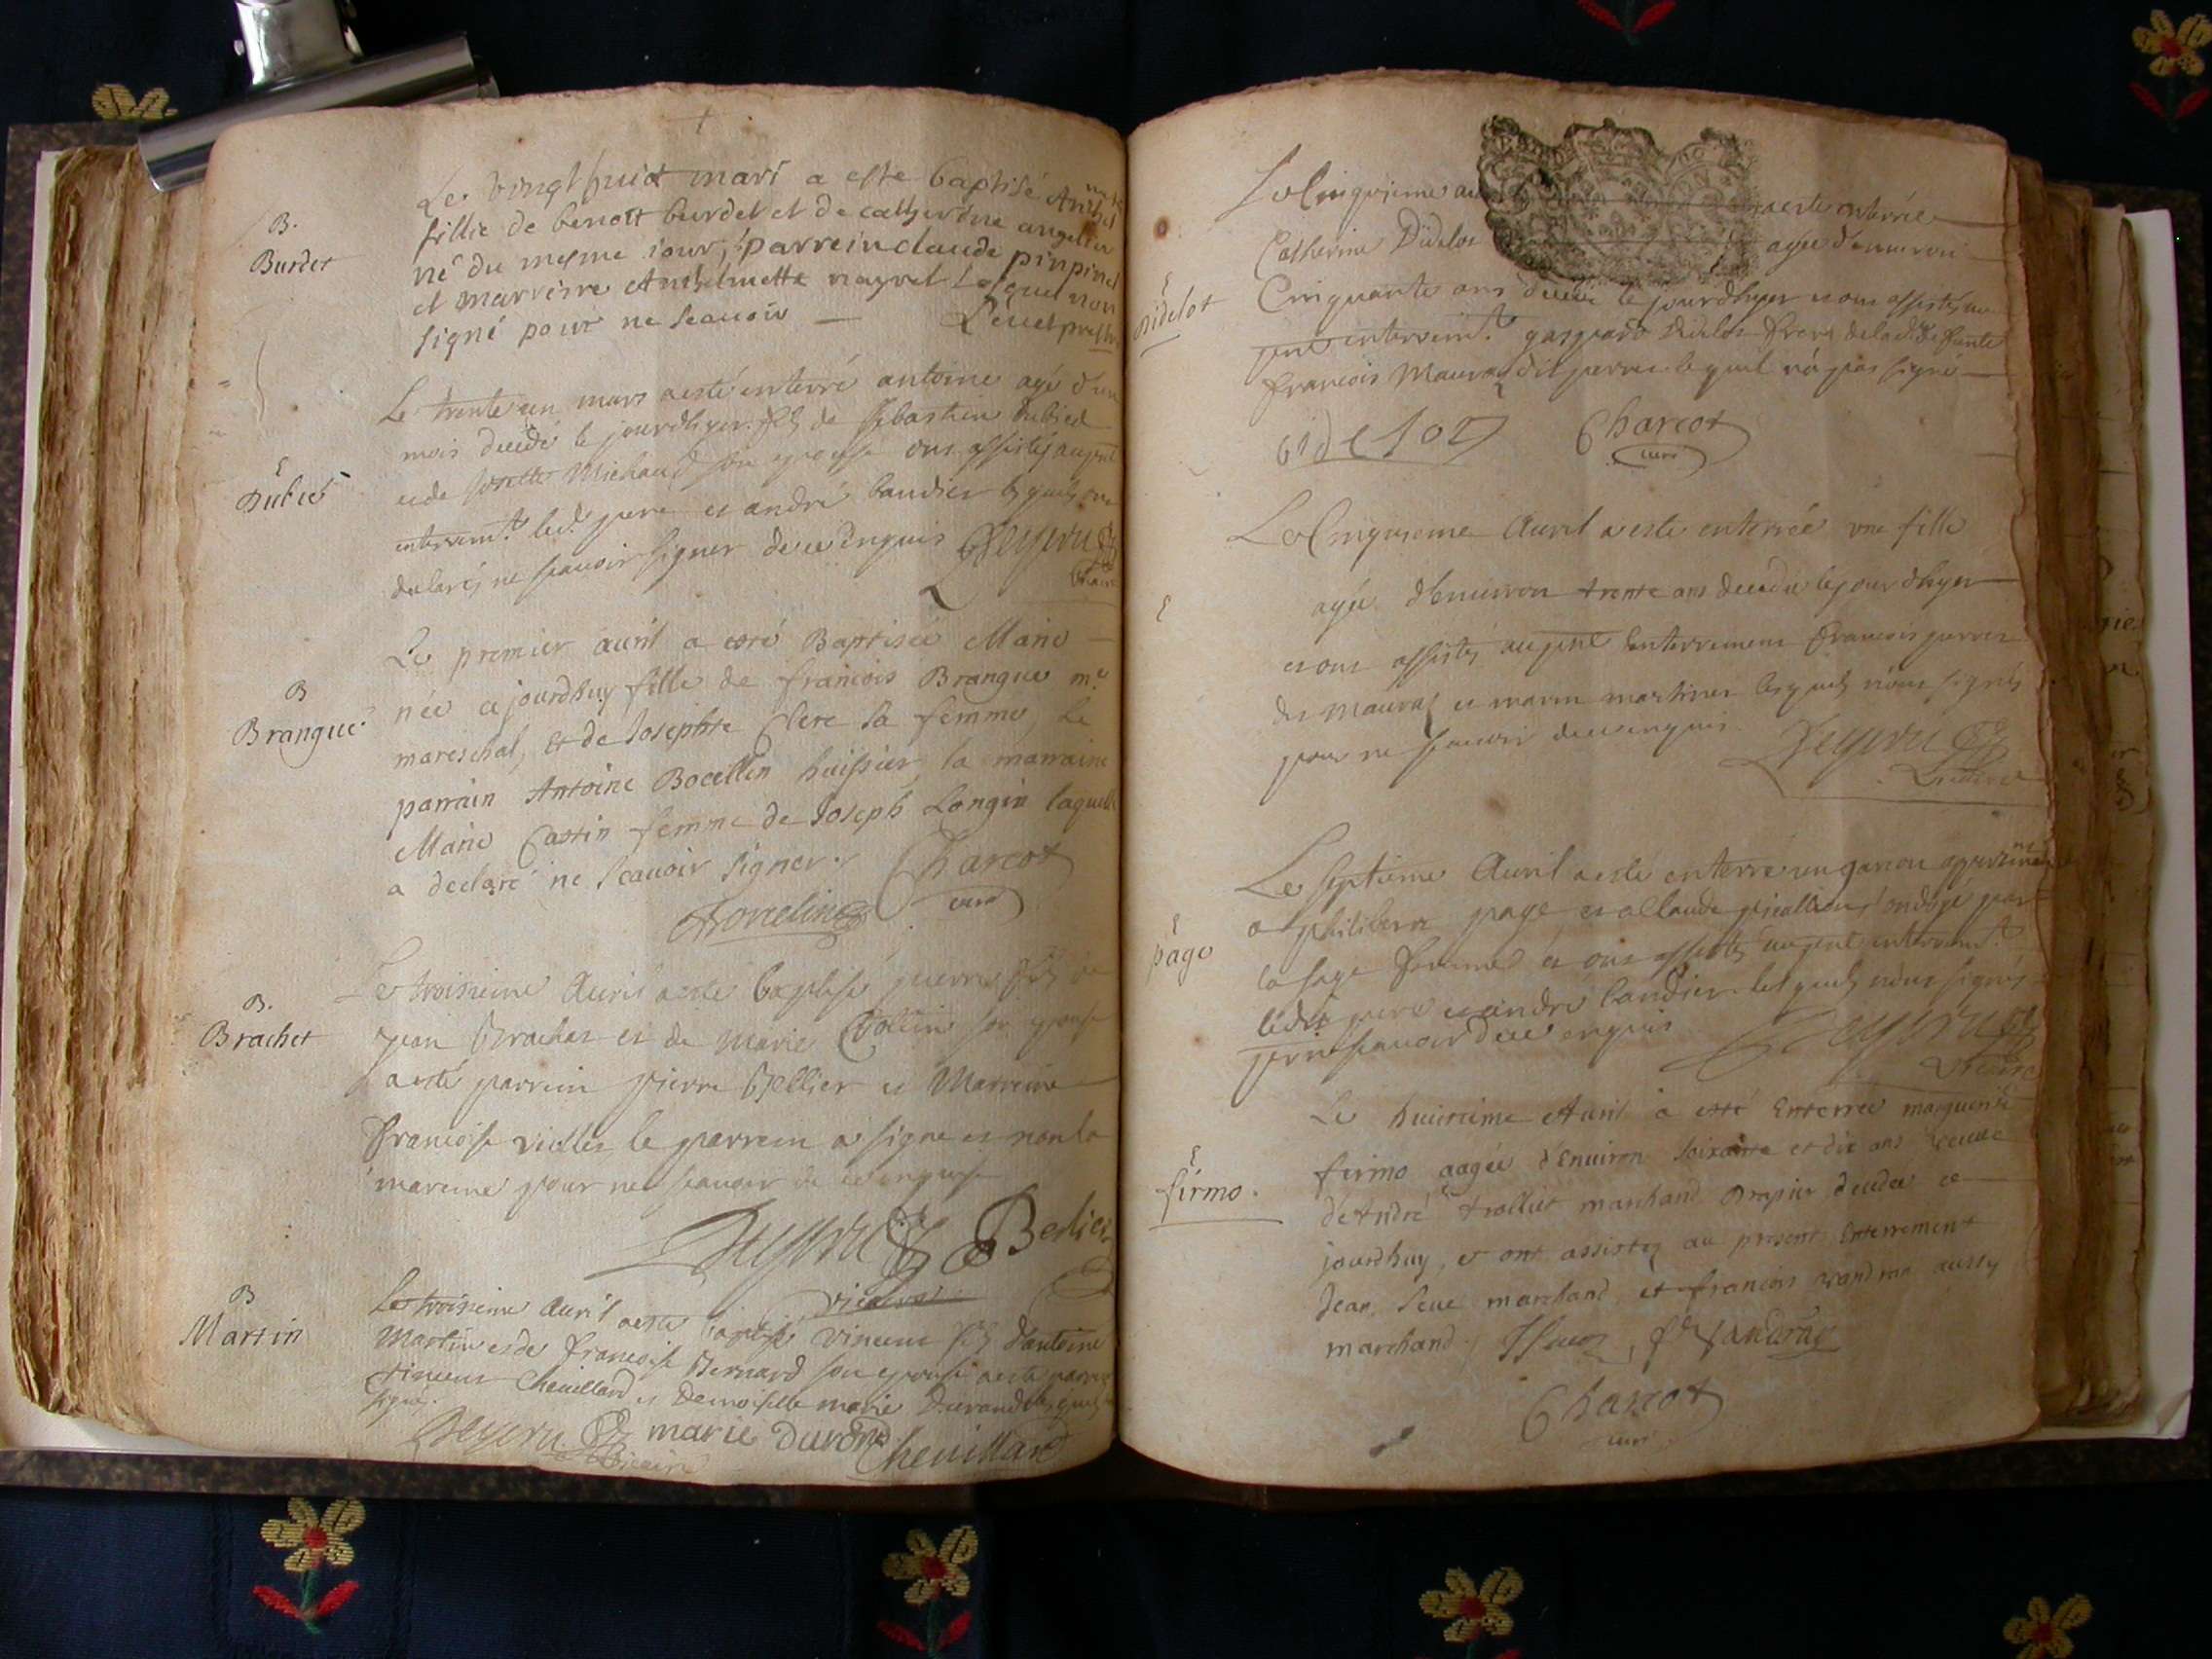 B.
Burdet
Le vingt huict mars a este baptisé
fillie de benoit burdet et de catherine angelier
né du mesme iour, parrein claude pinpinel
et marreine Anthelmette nayret Lesquel non
signé pour ne scauoir
E
Dubié
Le trente un mars a esté enterré antoine agé d'un
mois decedé le jourdhyer fils de sebastien dubied
et de Michaud son epouse ont assistés au pnt
enterremt. led. pere et andré baudier lesquels ont
declarés ne scauoir signer de ce enquis
B
Brangue
Le premier auril a esté Baptisée Marie
née ce jourdhuy fille de francois Brangue me.
mareschal, et de Josephte Clerc sa femme, le
parrain Antoine Bocellin huissier, la marraine
Marie Castin femme de Joseph Longin laquelle
a declaré ne scauoir signer.
Charcot
curé
B.
Brachet
Le troisieme Auril a esté baptisé pierre fils de
jean Brachet et de Marie Collin son epouse
a esté parrein pierre et Marreine
francoise le parrein a signé et non la
mareine pour ne scauoir de ce enquise
vicaire
B
Martin
Le troisieme Auril a esté baptisé vincent fils d'antoine
Martin et de francoise Bernard son epouse a esté parrein
vincent Cheuillard et Demoiselle marie Durand lesquels
signé.
marie durand Cheuillard
vicaire
E
Didelot
Le Cinquieme a este enterrée
Catherine Didelot agée d'enuiron
Cinquante ans decedée le jourdhyer et ont assistés au
pnt enterremt. gaspard Didelot frere de lad. defunte
francois Mauras dit perret lequel n'a pas signé
didelot Charcot
curé
E
Le Cinquieme Auril a este enterrée une fille
agée d'enuiron trente ans decedée le jour dhyer
et ont assistés au pnt Enterrement francois perret
dit Mauras et marin martinet lesquels n'ont signés
pour ne scauoir de ce enquis
Vicaire
E
page
Le septieme Auril a esté enterré un garcon appartenant
a philibert page et a Claude ondoyé par
la sage femme et ont assistés au pnt enterremt.
ledit pere et andré baudier lesquels n'ont signés
pr ne scauoir de ce enquis
Vicaire
E
firmo.
Le huictieme Auril a esté Enterrée marguerite
firmo aagée d'Enuiron soixante et dix ans veuue
de André trolliet marchand Drapier, decedée ce
jourdhuy, et ont assistez au present Enterrement
Jean Seue marchand, et francois vandran aussy
marchand.
Charcot
curé